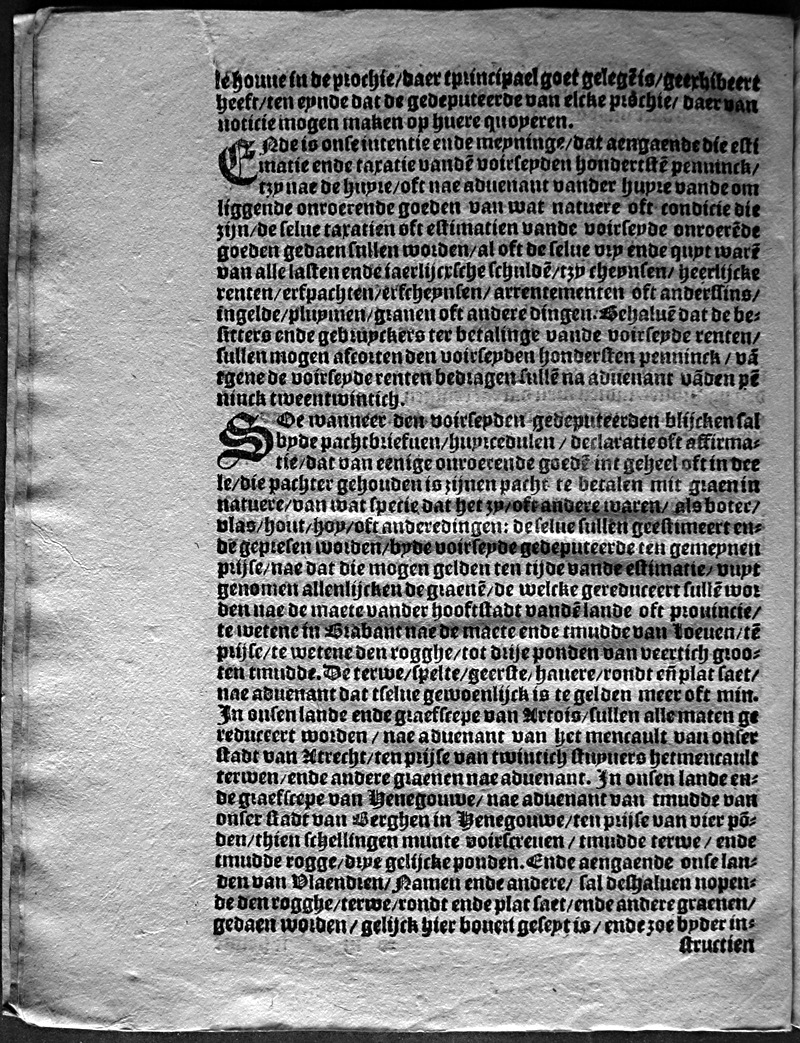 le honne in de prochie/daer tprincipael goet gelegẽ is/geexhibeert
heeft/ten eynde dat de gedeputeerde van elcke prochie/ daer van
noticie mogen maken op huere quoyeren.
ENde is onse intentie ende meyninge/dat aengaende die esti
matie ende taxatie vandẽ voirseyden hondertstẽ penninck/
tzy nae de huyre/oft nae aduenant vander huyre vande om
liggende onroerende goeden van wat natuere oft condicie die
zijn/de selue taxatien oft estimatien vande voirseyde onroerẽde
goeden gedaen sullen worden/al oft de selue vry ende quyt warẽ
van alle lasten ende iaerlijcxsche schuldẽ/tzy cheynsen/ heerlijcke
renten/erfpachten/erfcheynsen/ arrentementen oft anderssins/
ingelde/pluymen/granen oft andere dingen. Behaluẽ dat de be-
sitters ende gebruyckers ter betalinge vande voirseyde renten/
sullen mogen afcorten den voirseyden hondersten penninck / vã
tgene de voirseyde renten bedragen sullẽ na aduenant vãden pẽ
ninck tweentwintich.
SOe wanneer den voirseyden gedeputeerden blijcken sal
byde pachtbriefuen/huyrcedulen / declaratie oft affirma-
tie/dat van eenige onroerende goedẽ int geheel oft in dee
le/die pachter gehouden is zijnen pacht te betalen mit graen in
natuere/van wat specie dat het zy/oft andere waren/ als boter/
vlas/hout/hoy/oft andere dingen: de selue sullen geestimeert en-
dẽ gepresen worden/byde voirseyde gedeputeerde ten gemeynen
prijse/nae dat die mogen gelden ten tijde vande estimatie/ vuyt
genomen allenlijcken de graenẽ/de welcke gereduceert sullẽ wor
den nae de maete vander hooftstadt vandẽ lande oft prouincie/
te wetene in Brabant nae de maete ende tmudde van Loeuen/tẽ
prijse/te wetene den rogghe/tot drije ponden van veertich groo-
ten tmudde. De terwe/spelte/geerste/hauere/rondt eñ plat saet/
nae aduenant dat tselue gewoenlijck is te gelden meer oft min.
In onsen lande ende graefscepe van Artois/sullen alle maten ge
reduceert worden / nae aduenant van het mencault van onser
stadt van Atrecht/ten prijse van twintich stuyuers hetmencault
terwen/ende andere graenen nae aduenant. In onsen lande en-
de graefscepe van Henegouwe/ nae aduenant van tmudde van
onser stadt van Berghen in Henegouwe/ten prijse van vier põ-
den/thien schellingen munte voirscreuen / tmudde terwe / ende
tmudde rogge/drye gelijcke ponden. Ende aengaende onse lan-
den van Vlaendren/ Namen ende andere/ sal deshaluen nopen-
de den rogghe/terwe/rondt ende plat saet/ende andere graenen/
gedaen worden / gelijck hier bouen geseyt is / ende zoe byder in-
structien